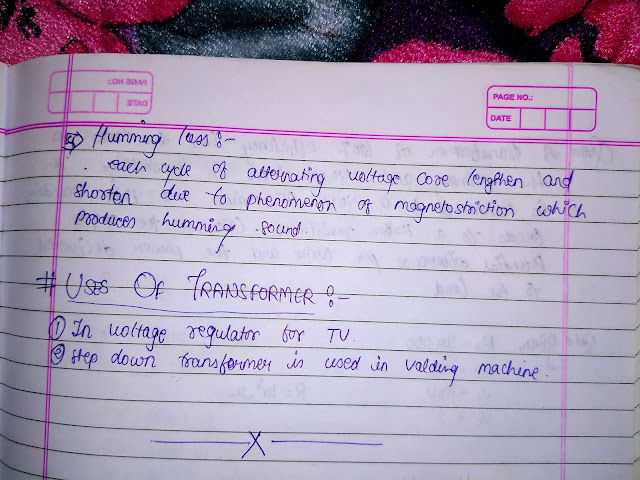 PAGE NO.:
DATE
PAGE NO.:
DATE
Humming loss:-
each cycle of alternating voltage core lengthen and
shorten due to phenomenon of magnetostriction which
produces humming sound
# USES OF TRANSFORMER :-
① In voltage regulator for TV.
② Step down transformer is used in valding machine.
X